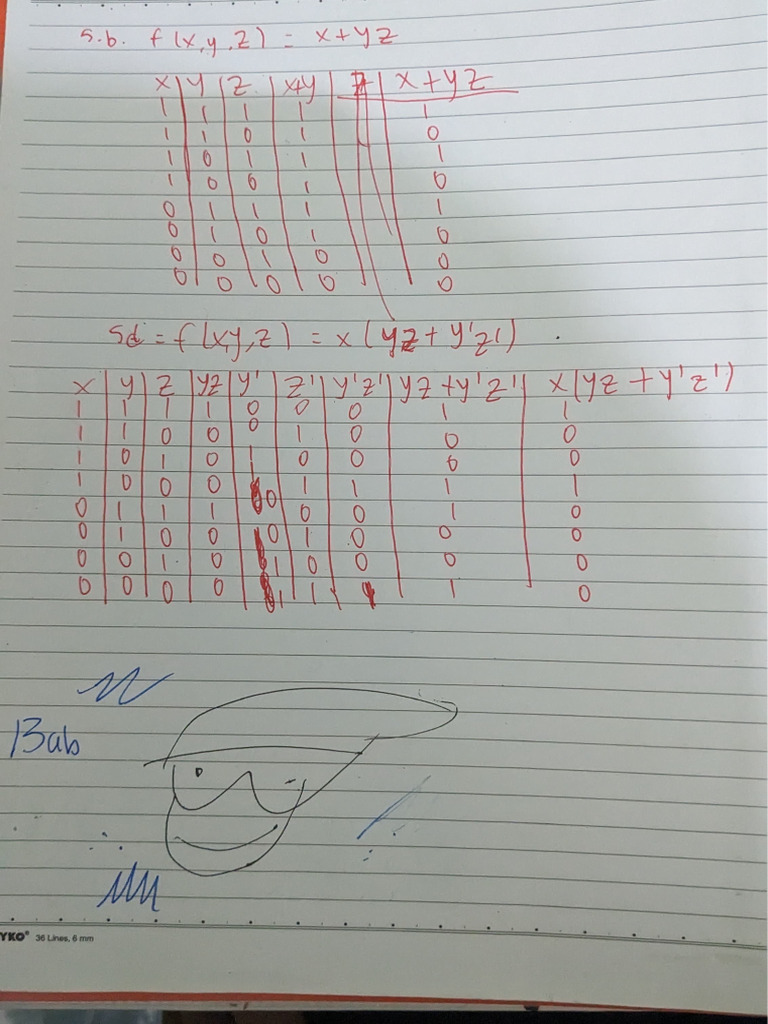 5.b. f(x,y,z) = x+yz
x y z x+y x+yz
1 1 1 1 1
1 1 0 1 0
1 0 1 1 1
1 0 0 1 0
0 1 1 1 1
0 1 0 1 0
0 0 1 0 0
0 0 0 0 0
5d = f(x,y,z) = x(yz + y'z')
x y z yz y' z' y'z' yz + y'z' x(yz + y'z')
1 1 1 1 0 0 0 1 1
1 1 0 0 0 1 0 0 0
1 0 1 0 1 0 0 0 0
1 0 0 0 1 1 1 1
0 1 1 1 0 0 0 1 0
0 1 0 0 0 1 0 0 0
0 0 1 0 1 0 0 0 0
0 0 0 0 1 1 1 0
Bab
YKO® 36 Lines, 6 mm